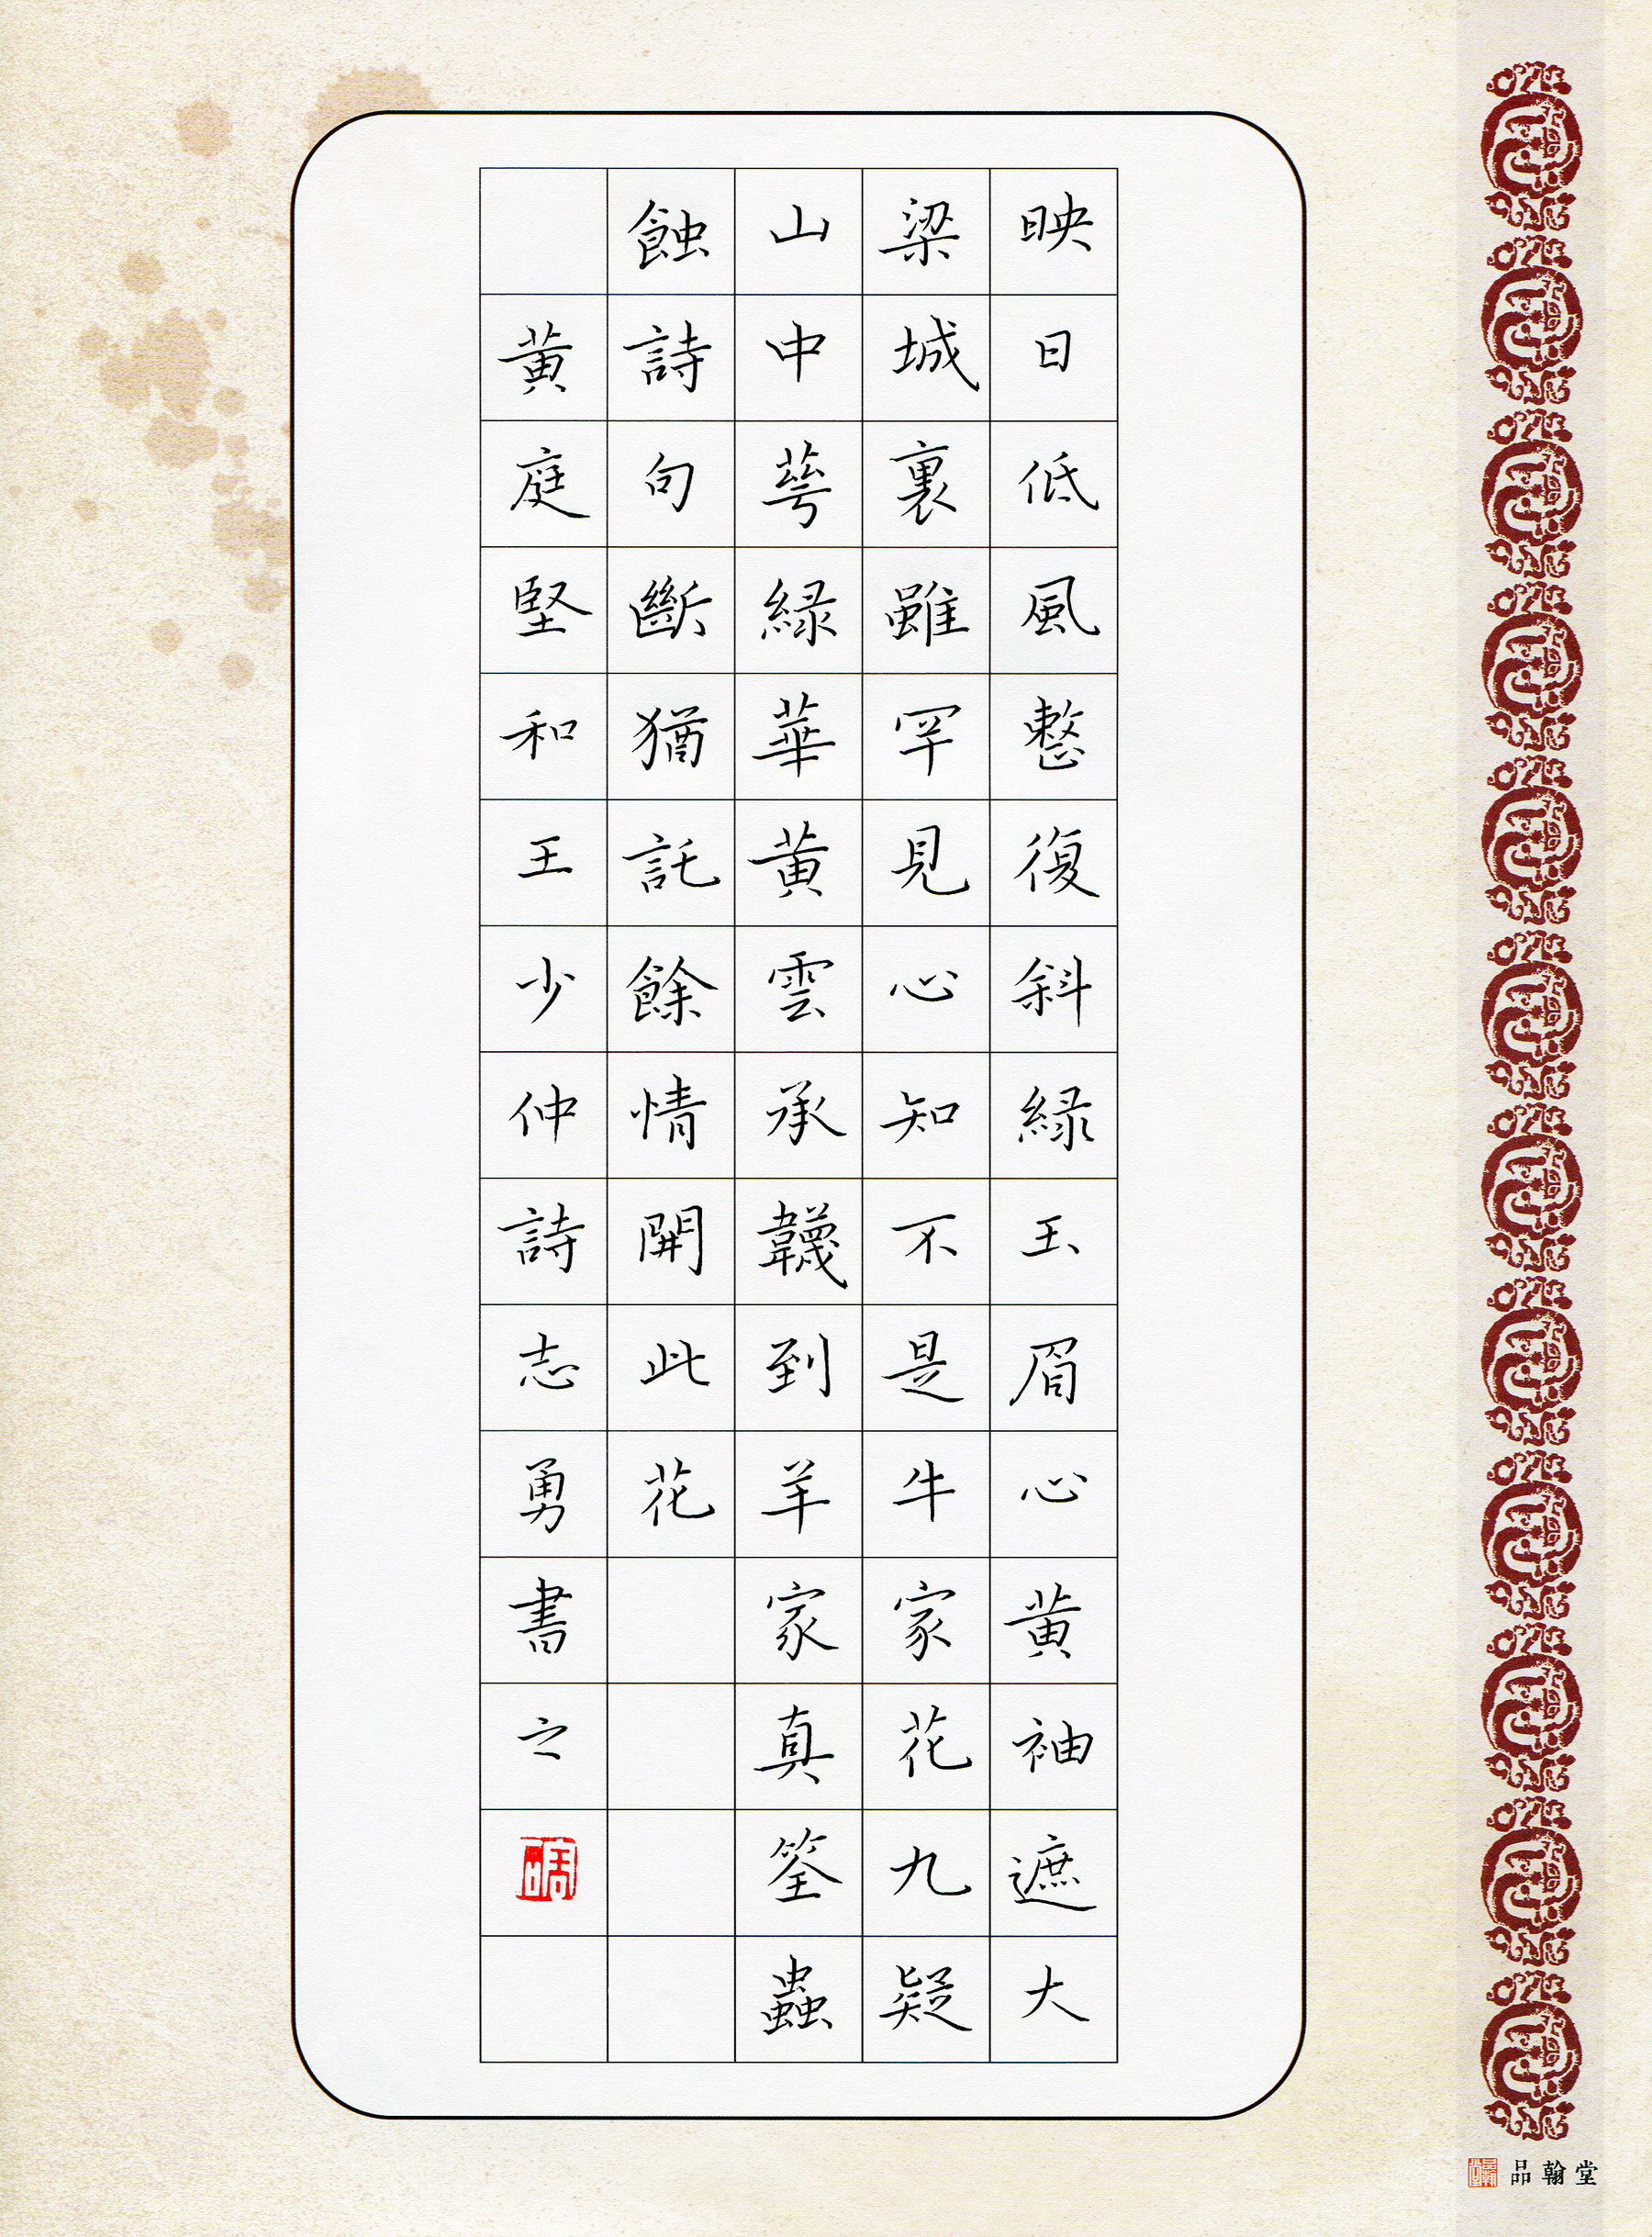 映日低風整復斜緑玉眉心黄袖遮大
梁城裏雖罕見心知不是牛家花九疑
山中萼緑華黄雲承韈到羊家真筌蟲
蝕詩句斷猶託餘情開此花
黄庭堅和王少仲詩志勇書之
品翰堂